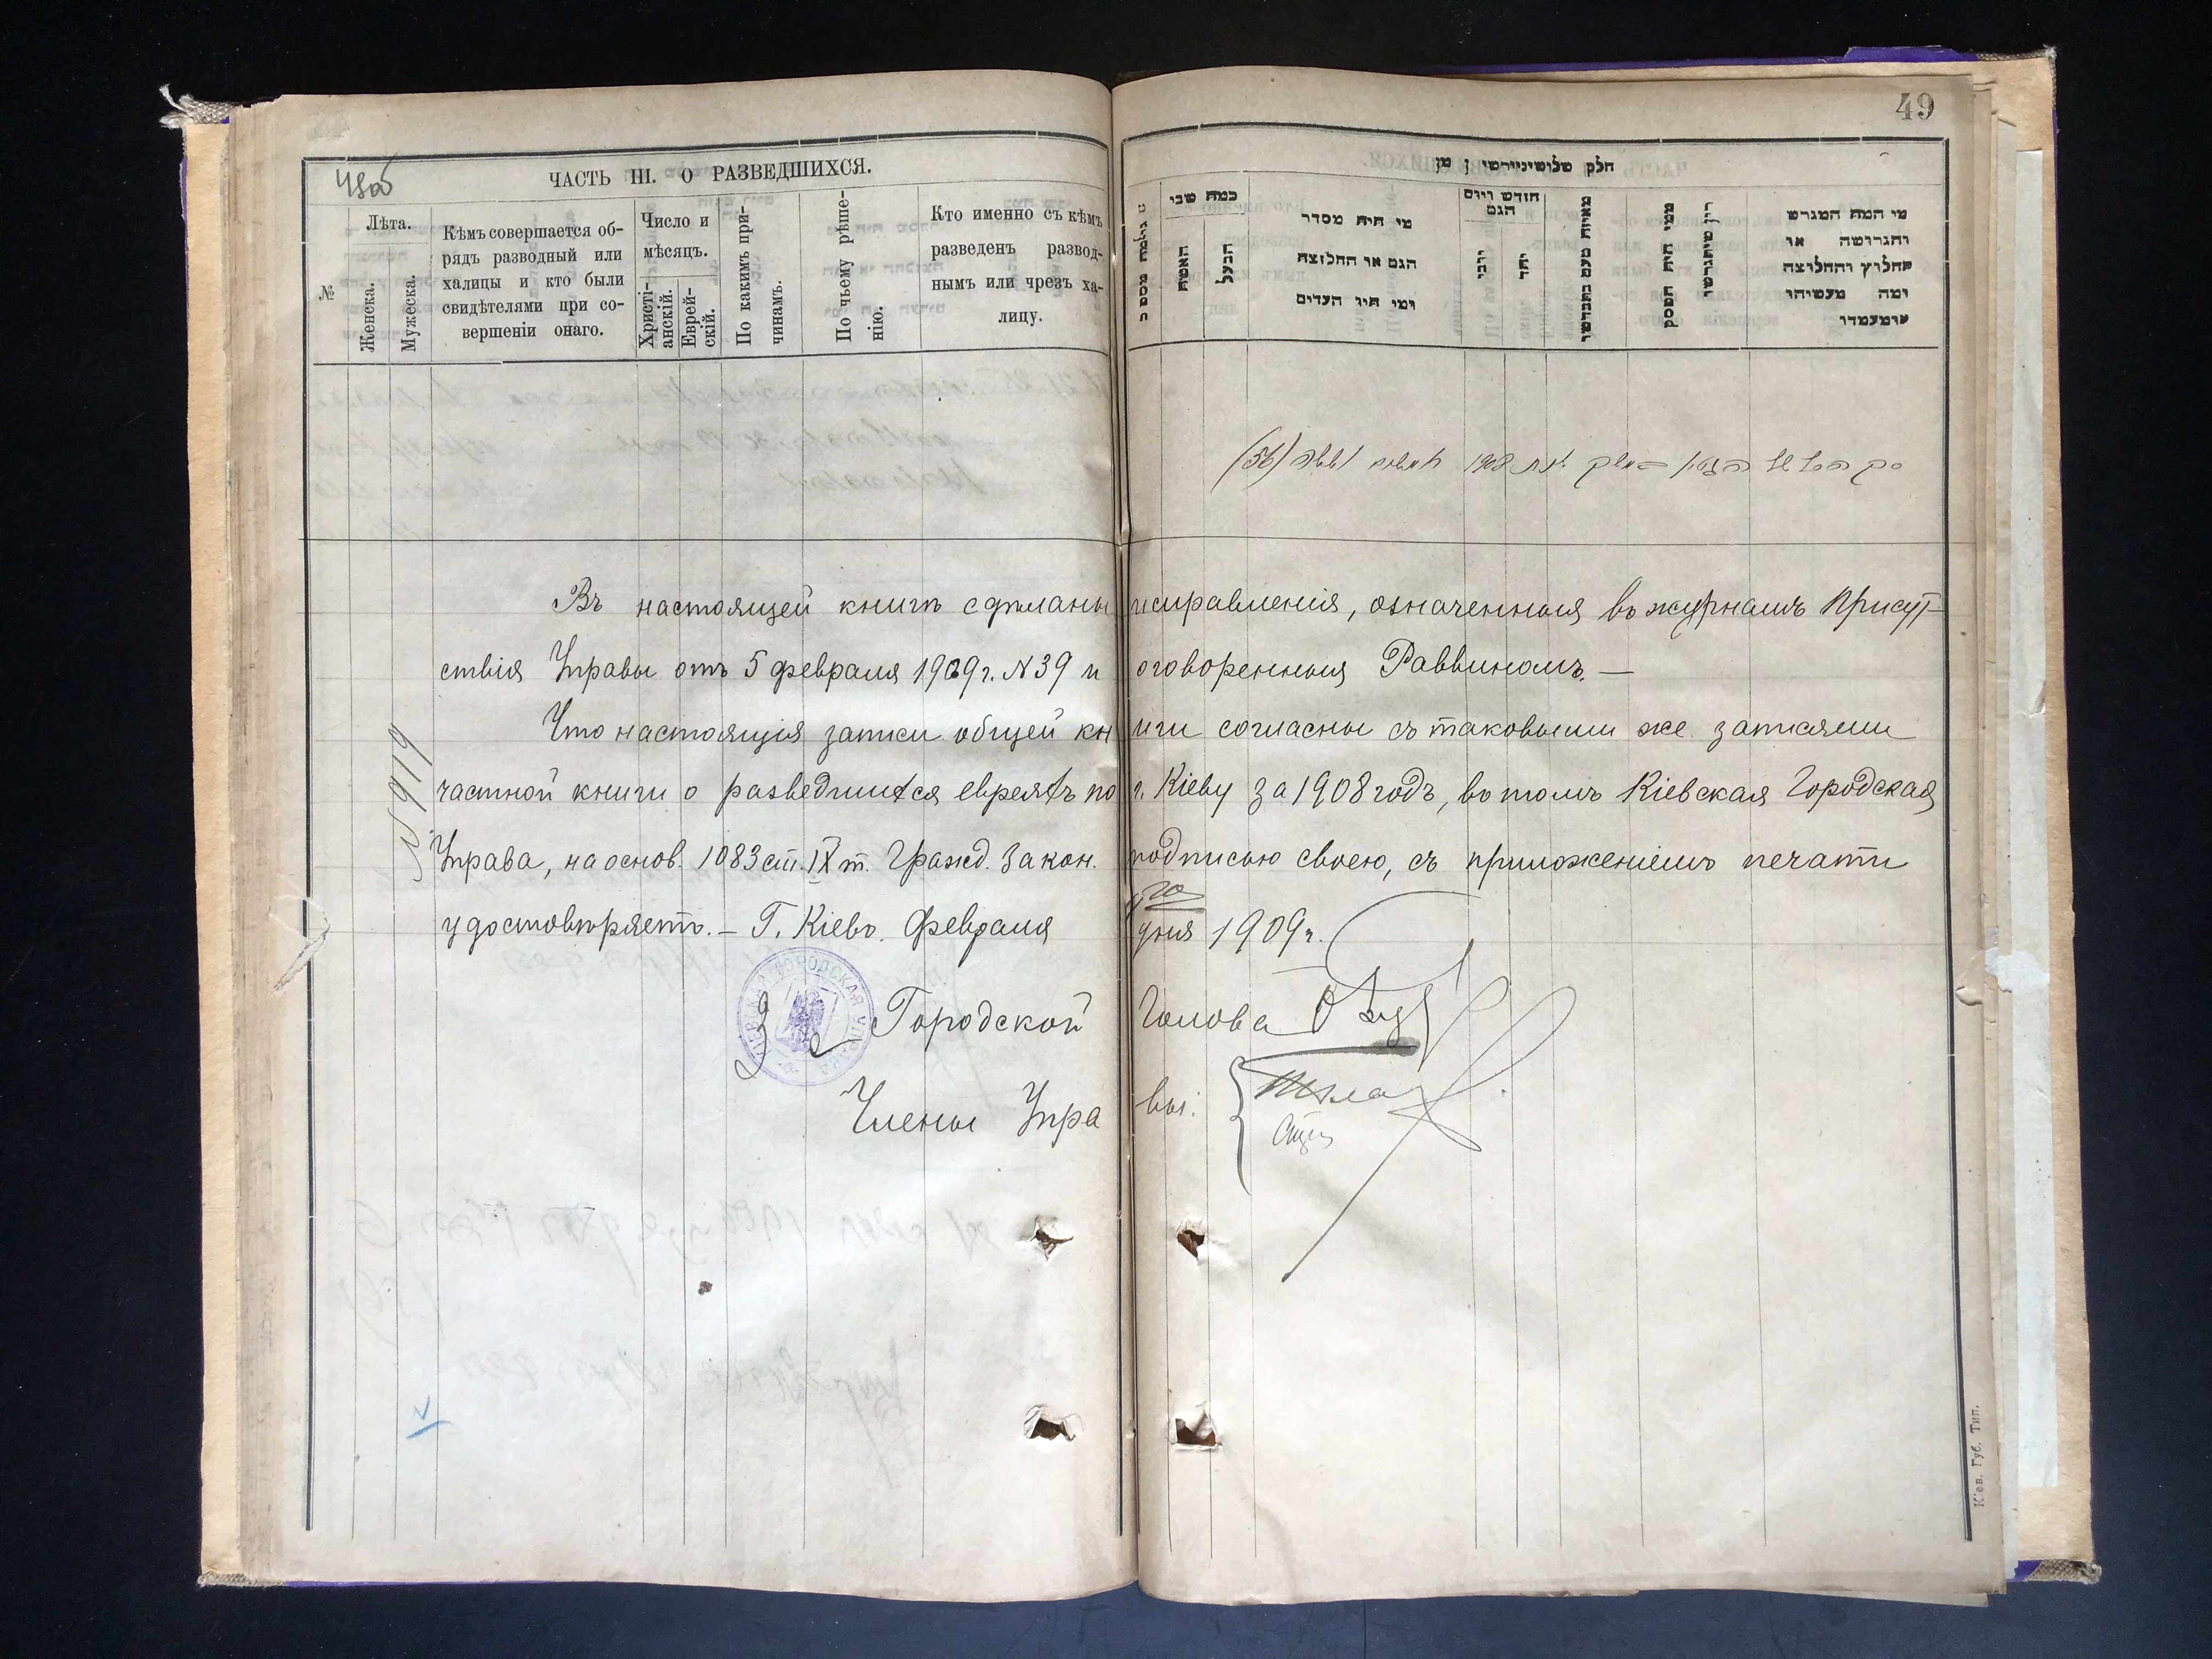 48об
ЧАСТЬ III. О РАЗВЕДШИХСЯ.
№
Лѣта.
Женска.
Мужеска.
Кѣмъ совершается об-
рядъ разводный или
халицы и кто были
свидѣтелями при со-
вершеніи онаго.
Число и
мѣсяцъ.
Христі-
анскій.
Еврей-
скій.
По какимъ при-
чинамъ.
По чьему рѣше-
нію.
Кто именно съ кѣмъ
разведенъ развод-
нымъ или чрезъ ха-
лицу.
49
חלק שלישי
כמה שני
האשה
הבעל
מי היה מסדר
הגט או החליצה
ומי היו העדים
חודש ויום
הגט
מי המה המגרש
והגרושה או
החלוץ והחלוצה
ומה מעשיהו
ומעמדו
(56) 1908
Въ настоящей книгѣ сдѣланы исправленія, означенныя въ журналѣ Присут-
ствія Управы отъ 5 февраля 1909 г. N 39 и оговоренныя Раввиномъ. —
Что настоящія записи общей книги согласны съ таковыми же записями
частной книги о разведшихся евреяхъ по г. Кіеву за 1908 годъ, въ томъ Кіевская Городская
Управа, на основ. 1083 ст. IX т. Гражд. Закон. подписью своею, съ приложеніемъ печати
удостовѣряетъ. — Г. Кіевъ. Февраля дня 1909 г.
N 919
Городской Голова
Члены Управы:
КІЕВСКАЯ ГОРОДСКАЯ УПРАВА
Кіев. Губ. Тип.